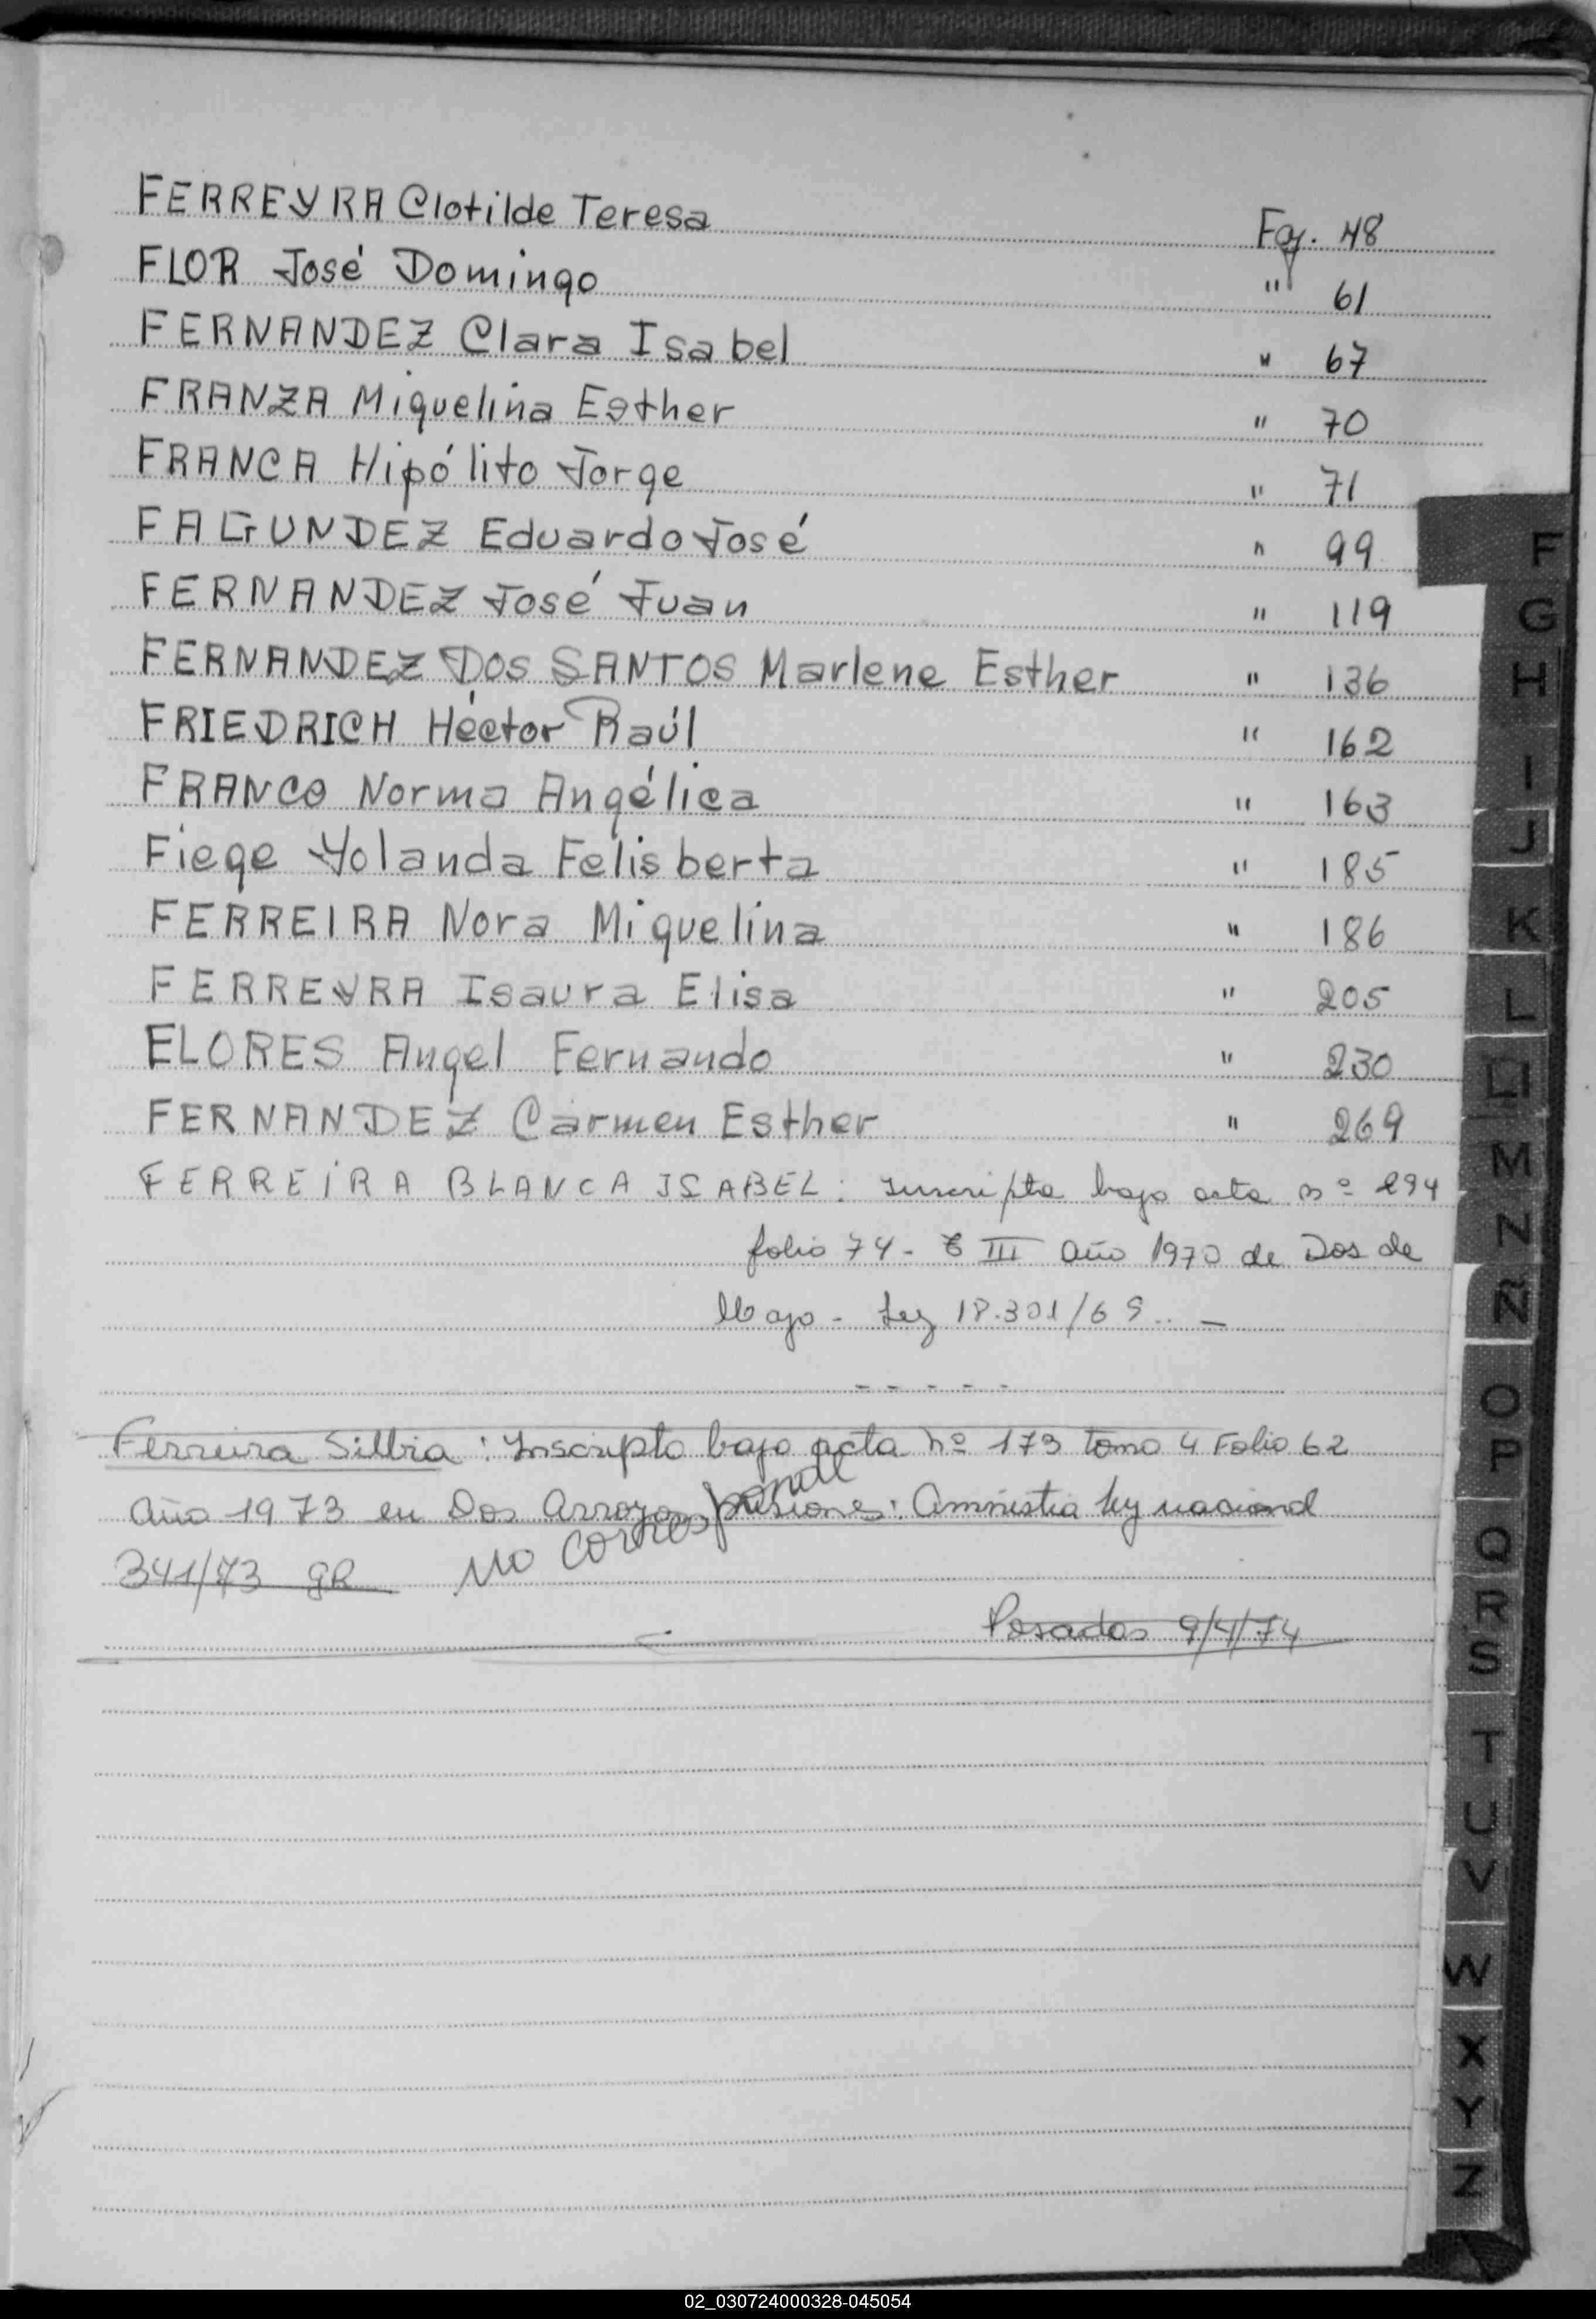 FERREYRA Clotilde Teresa Foj. 48
FLOR José Domingo " 61
FERNANDEZ Clara Isabel " 67
FRANZA Miguelina Esther " 70
FRANCA Hipólito Jorge " 71
FAGUNDEZ Eduardo José " 99
FERNANDEZ José Juan " 119
FERNANDEZ DOS SANTOS Marlene Esther " 136
FRIEDRICH Héctor Raúl " 162
FRANCO Norma Angélica " 163
Fiege Yolanda Felisberta " 185
FERREIRA Nora Miguelina " 186
FERREYRA Isaura Elisa " 205
FLORES Angel Fernando " 230
FERNANDEZ Carmen Esther " 269
FERREIRA BLANCA ISABEL: Inscripta bajo acta nº 294
folio 74 - T III Año 1970 de Dos de
Mayo - Ley 18.301/69.. —
- - - - -
Ferreira Silbia: Inscripta bajo acta nº 173 tomo 4 Folio 62
Año 1973 en Dos Arroyos, Misiones: Amnistia ley nacional
341/73 gR No corresponde
Posadas 9/4/74
F
G
H
I
J
K
L
Ll
M
N
Ñ
O
P
Q
R
S
T
U
V
W
X
Y
Z
02_030724000328-045054